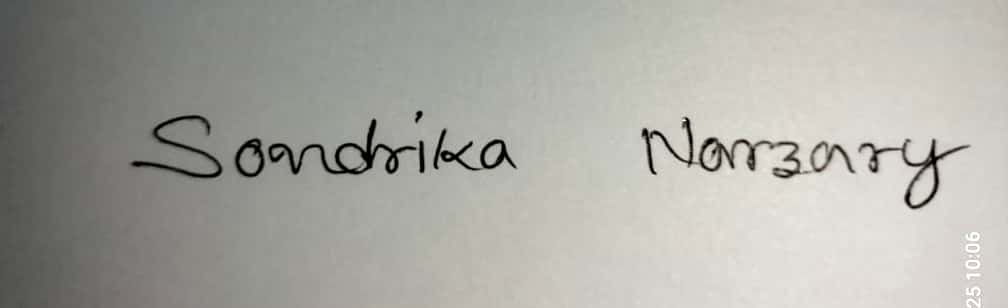 Sandrika Narzary
25 10:06